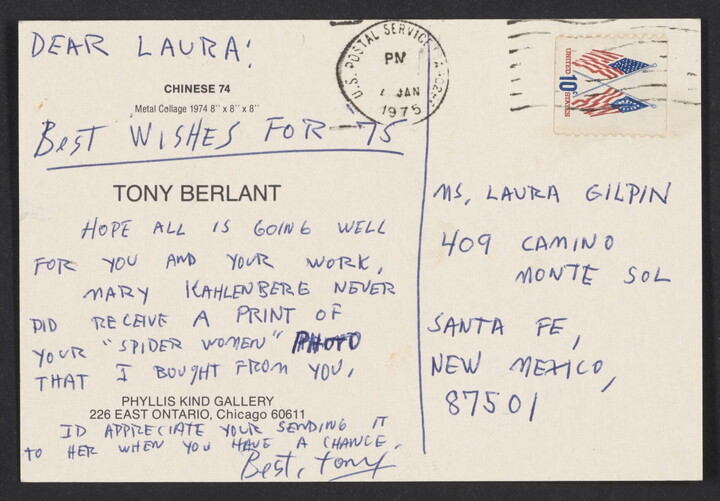 DEAR LAURA:
CHINESE 74
Metal Collage 1974 8" x 8" x 8"
BEST WISHES FOR 75
TONY BERLANT
HOPE ALL IS GOING WELL
FOR YOU AND YOUR WORK,
MARY KAHLENBERG NEVER
DID RECEIVE A PRINT OF
YOUR "SPIDER WOMEN" PHOTO
THAT I BOUGHT FROM YOU,
PHYLLIS KIND GALLERY
226 EAST ONTARIO, Chicago 60611
ID APPRECIATE YOUR SENDING IT
TO HER WHEN YOU HAVE A CHANCE.
Best, Tony
U.S. POSTAL SERVICE
PM
JAN
1975
UNITED STATES
10c
MS, LAURA GILPIN
409 CAMINO
MONTE SOL
SANTA FE,
NEW MEXICO,
87501